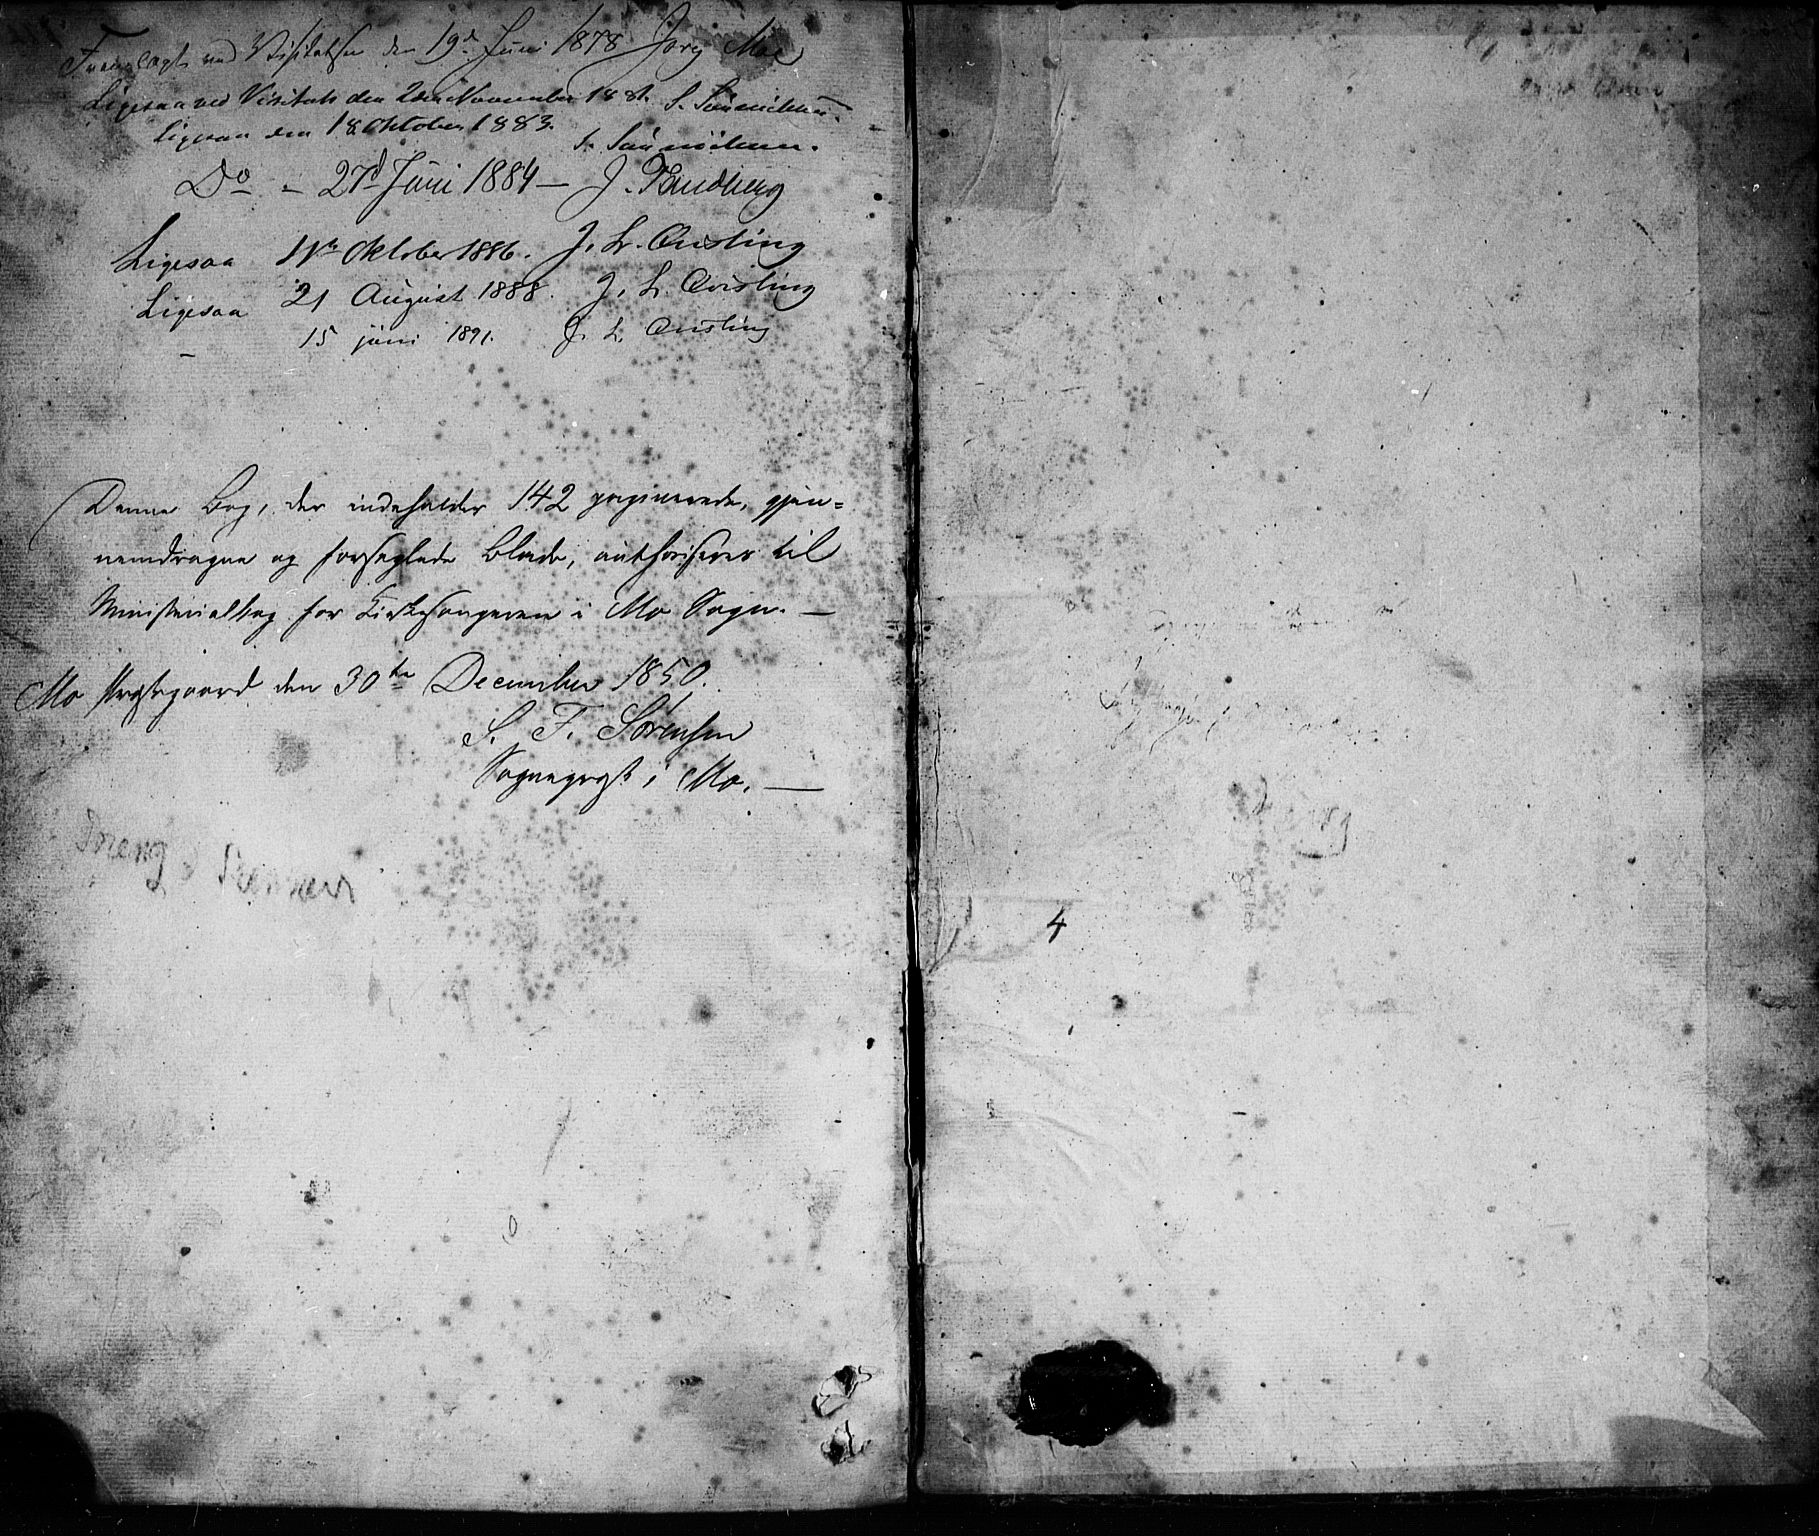 Fremlagt ved Visitatsen den 19d Juni 1878 Jörg Moe
Ligesaa ved Visitats den 2den November 1881. S. Sünnichsen.
Ligesaa den 18 Oktober 1883. S. Sünnichsen.
Do - 27d Juni 1884 — J. Tandberg
Ligesaa 11te Oktober 1886. J. L. Qvisling
Ligesaa 21 August 1888. J. L. Qvisling
- 15 juni 1891. J. L. Qvisling
Denne Bog, der indeholder 142 paginerede, gjen=
nemdragne og forseglede Blade, authoriseres til
Ministerialbog for Kirkesangeren i Mo Sogn. —
Mo Præstegaard den 30te December 1850.
S. F. Sörensen
Sognepræst i Mo. —
4